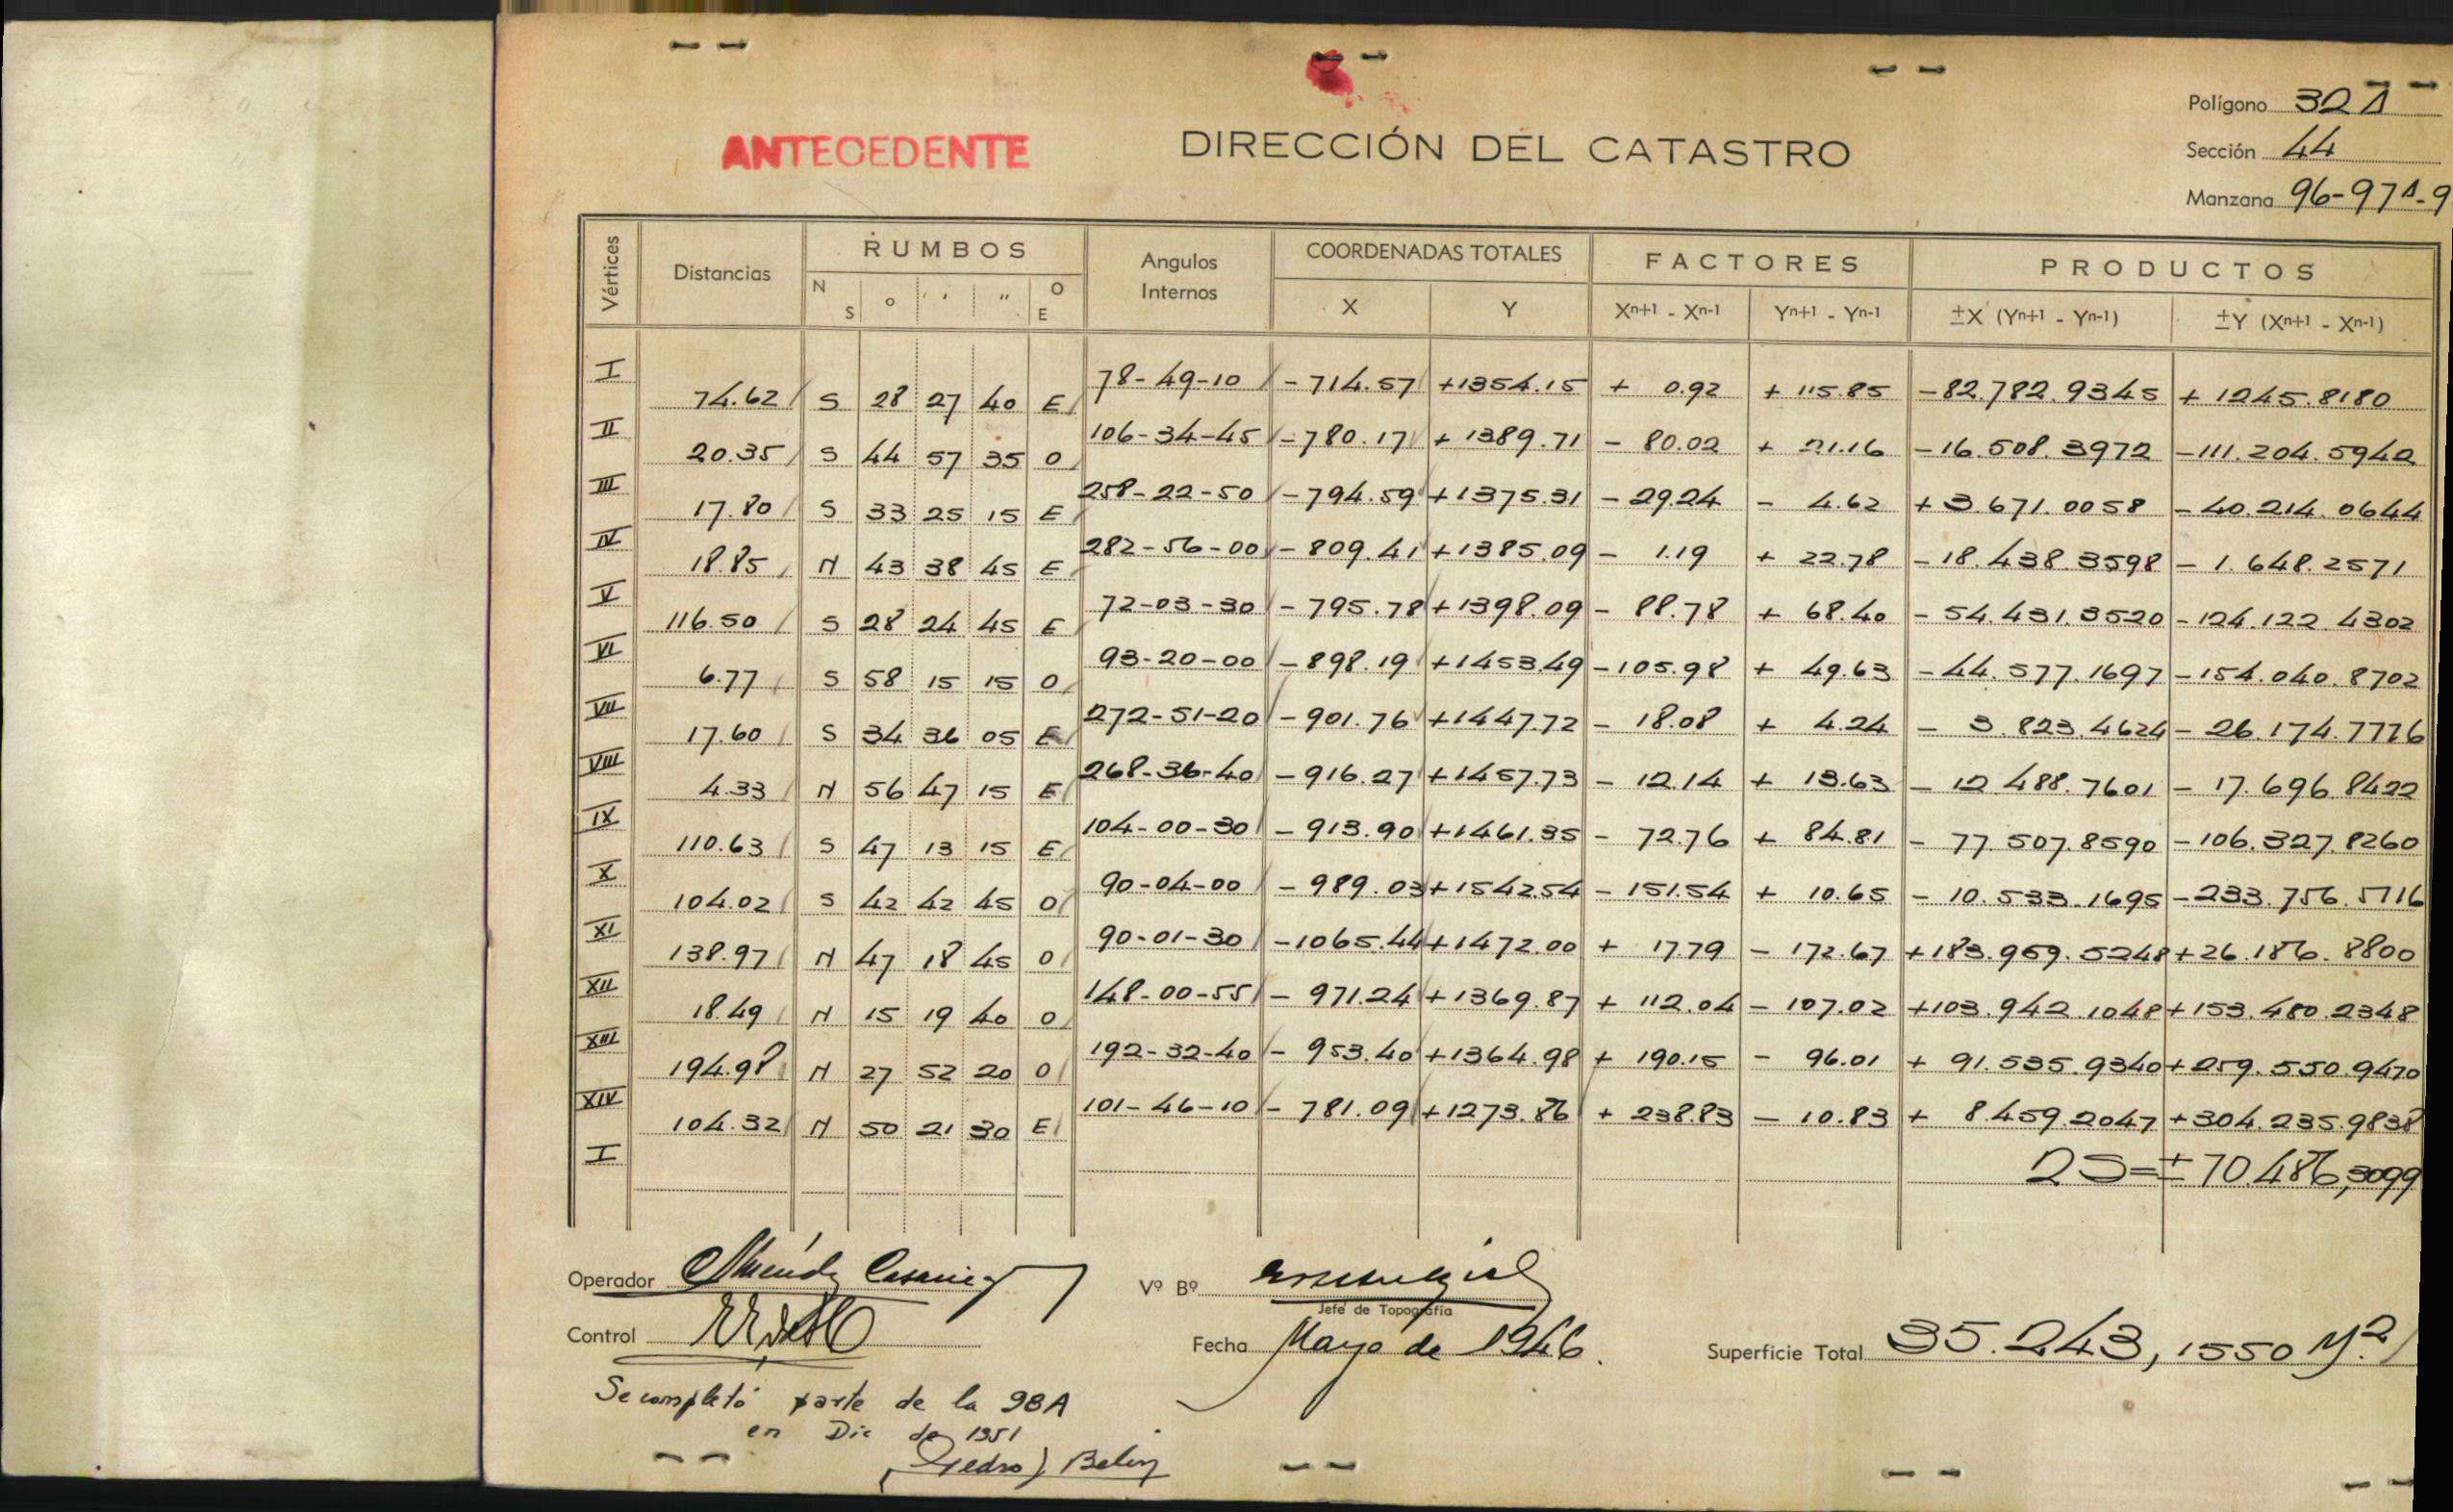 Polígono 32A
ANTECEDENTE DIRECCIÓN DEL CATASTRO
Sección 44
Manzana 96-97A-9
Vértices Distancias RUMBOS Angulos Internos COORDENADAS TOTALES FACTORES PRODUCTOS
N S o ' " O E X Y Xn+1 - Xn-1 Yn+1 - Yn-1 ±X (Yn+1 - Yn-1) ±Y (Xn+1 - Xn-1)
I 78-49-10 -714.57 +1354.15 + 0.92 + 115.85 -82.782.9345 + 1245.8180
74.62 S 28 27 40 E
II 106-34-45 -780.17 +1389.71 - 80.02 + 21.16 -16.508.3972 -111.204.5942
20.35 S 44 57 35 O
III 258-22-50 -794.59 +1375.31 - 29.24 - 4.62 +3.671.0058 -40.214.0644
17.80 S 33 25 15 E
IV 282-56-00 -809.41 +1385.09 - 1.19 + 22.78 -18.438.3598 -1.648.2571
18.85 N 43 38 45 E
V 72-03-30 -795.78 +1398.09 - 88.78 + 68.40 -54.431.3520 -124.122.4302
116.50 S 28 24 45 E
VI 93-20-00 -898.19 +1453.49 -105.98 + 49.63 -44.577.1697 -154.040.8702
6.77 S 58 15 15 O
VII 272-51-20 -901.76 +1447.72 - 18.08 + 4.24 - 3.823.4624 -26.174.7776
17.60 S 34 36 05 E
VIII 268-36-40 -916.27 +1457.73 - 12.14 + 13.63 -12.488.7601 -17.696.8422
4.33 N 56 47 15 E
IX 104-00-30 -913.90 +1461.35 - 72.76 + 84.81 -77.507.8590 -106.327.8260
110.63 S 47 13 15 E
X 90-04-00 -989.03 +1542.54 -151.54 + 10.65 -10.533.1695 -233.756.5116
104.02 S 42 42 45 O
XI 90-01-30 -1065.44 +1472.00 + 17.79 - 172.67 +183.969.5248 +26.186.8800
138.97 N 47 18 45 O
XII 148-00-55 -971.24 +1369.87 + 112.04 - 107.02 +103.942.1048 +153.480.2348
18.49 N 15 19 40 O
XIII 192-32-40 -953.40 +1364.98 + 190.15 - 96.01 + 91.535.9340 +259.550.9470
194.98 N 27 52 20 O
XIV 101-46-10 -781.09 +1273.86 + 238.83 - 10.83 + 8.459.2047 +304.235.9838
104.32 N 50 21 30 E
I 2S=±70.486,3099
Operador Vº Bº
Jefe de Topografía
Control Fecha Mayo de 1946. Superficie Total 35.243,1550 M.2
Se completó parte de la 98A
en Dic de 1951
Pedro J Belin